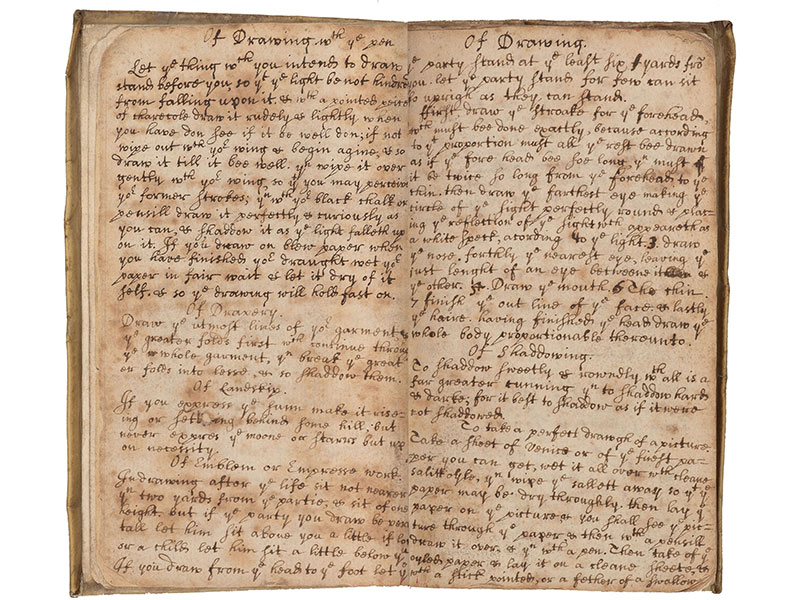 Of Drawing wth ye pen
Let ye thing wth you intend to draw
stand before you, so yt ye light be not hindred
from falling upon it. & wth a pointed peice
of charecole draw it rudely & lightly, when
you have don see if it be well don; if not
wipe it out wth yor wing & begin agine, & so
draw it till it bee well. yn wipe it over
gently wth yor wing, so yt you may perceive
yor former strokes; yn wth ye black chalk or
pensill draw it perfectly & curiously as
you can, & shaddow it as ye light falleth up
on it. If you draw on blew paper when
you have finished yor draught wet yor
paper in fair wait & let it dry of it
self. & so ye drawing will hold fast on.
Of Drapery.
Draw ye utmost lines of yor garment &
ye greater folds first wch continue throu
ye whole garment, yn break ye great
er folds into lesse, & so shaddow them.
Of Landskip.
If you express ye sunn make it rise-
ing or setting behind some hill. but
never expres ye moone or starrs but up
on necessity.
Of Emblem or Impresse work
In drawing after ye life sit not nearer
yn two yards from ye partie, & sit of one
height, but if ye party you draw be very
tall let him sit above you a little if low
or a child let him sit a little below you
If you draw from ye head to ye foot let ye
Of Drawing.
ye party stand at ye least six yards fro
you. let ye party stand for few can sit
so upright as they can stand.
First, draw ye stroake for ye forehead,
wch must bee done exactly, because according
to yt proportion must all ye rest bee drawn
as if ye fore head bee soe long, ye must
it be twice so long from ye forehead, to ye
chin. then draw ye farthest eye making ye
circle of ye sight perfectly round & plac-
ing ye reflection of ye sight wch appeareth as
a white speck, acording to ye light. 3 draw
ye nose. forthly ye nearest eye, leaving ye
just lenght of an eye betweene it &
ye other. 5. Draw ye mouth. 6 The chin
7 finish ye out line of ye face, & lastly
ye haire. having finished ye head draw ye
whole body proportionable thereunto.
Of Shaddowing.
To shaddow sweetly & rowndly wth all is a
far greater cunning yn to shaddow hard
& darke; for it best to shaddow as if it were
not shaddowed.
To take a perfect draugh of a picture.
Take a sheet of venice or of ye finest pa-
per you can get, wet it all over wth cleane
sallitt oyle, yn wipe ye sallett away so yt ye
paper may be dry throughly. then lay ye
paper on ye picture & you shall see ye pic-
ture through ye paper & then wth a pensill
draw it over, & yn wth a pen. Then take of ye
oyled paper & lay it on a cleane sheete, &
wth a stick pointed, or a fether of a swallow